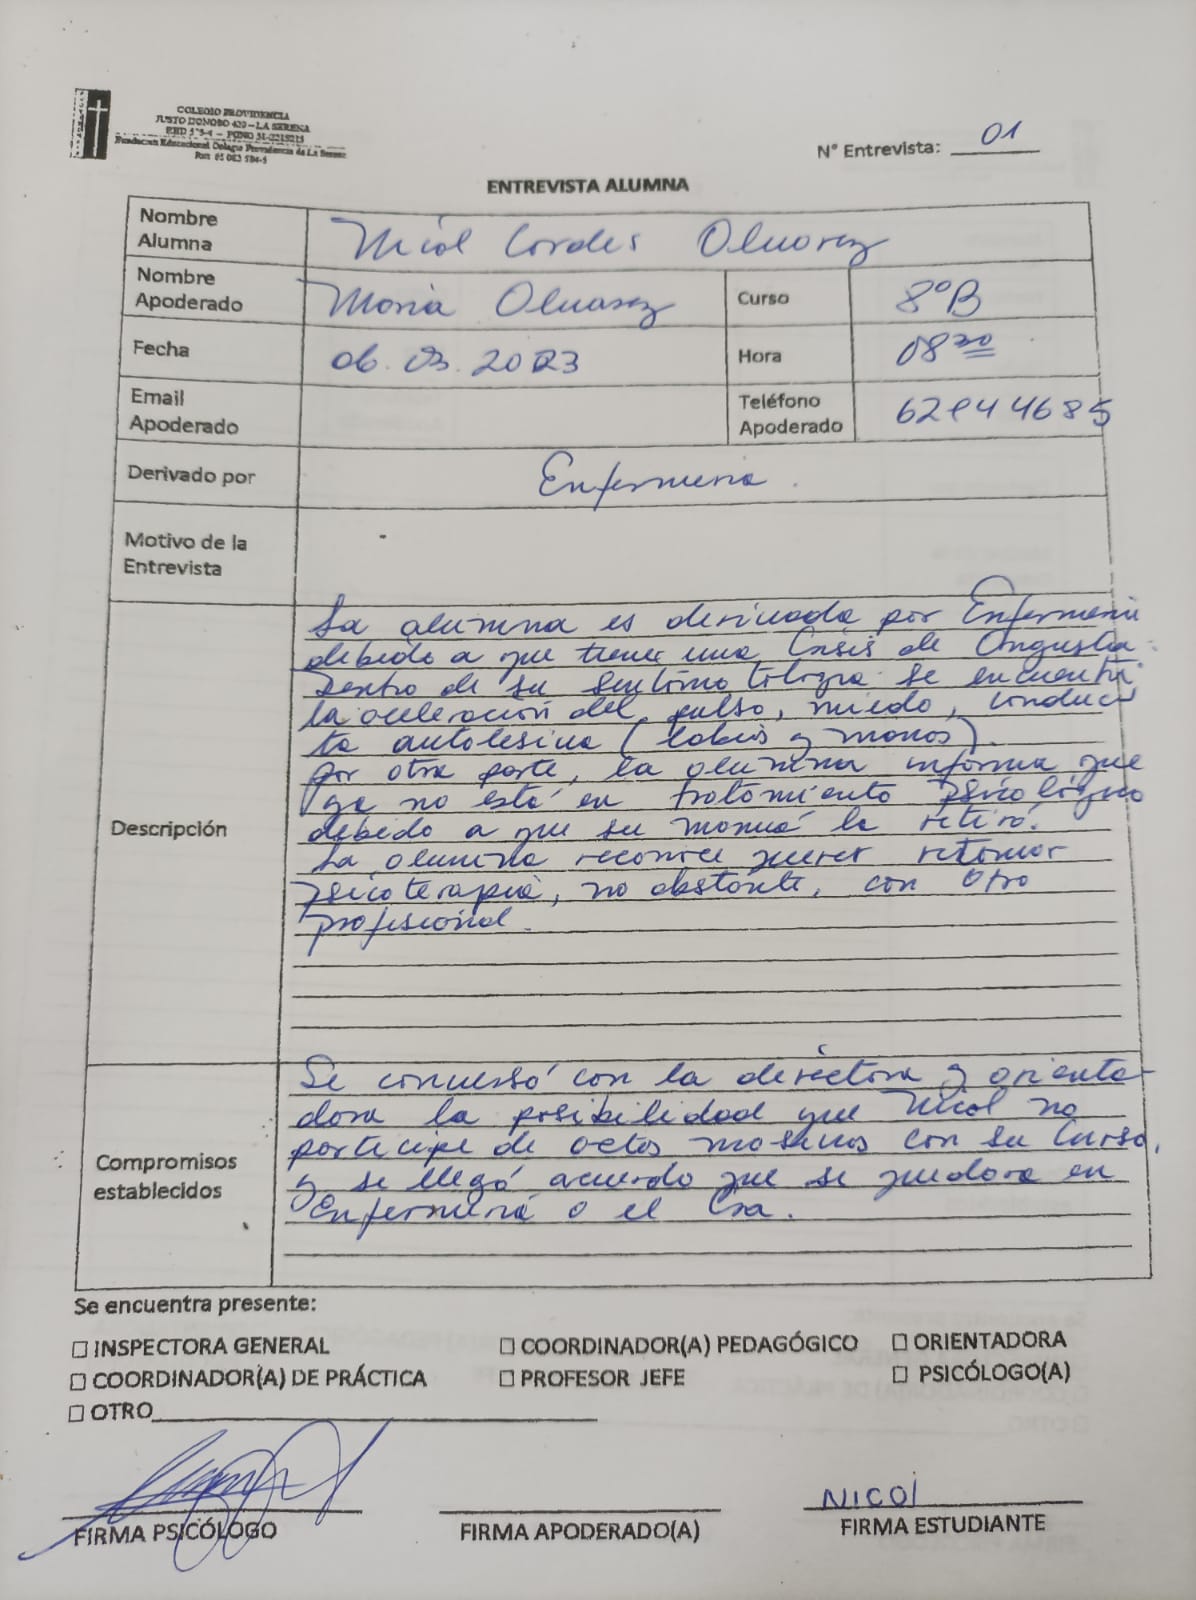 COLEGIO PROVIDENCIA
JUSTO DONOSO 420 – LA SERENA
N° Entrevista: 01
ENTREVISTA ALUMNA
Nombre Alumna
Nicol Cordes Alvarez
Nombre Apoderado
Maria Alvarez
Curso
8°B
Fecha
06.03.2023
Hora
08
Email Apoderado
Teléfono Apoderado
Derivado por
Enfermeria.
Motivo de la Entrevista
Descripción
La alumna es derivada por Enfermeria
debido a que tiener una Crisis de Angustia.
Dentro de su sintomatología se encuentra
la aceleración del pulso, miedo, conduc
ta autolesiva (labios y manos).
Por otra parte, la alumna informa que
ya no está en tratamiento psicológico
debido a que su mamá la retiró.
La alumna reconoce querer retomar
psicoterapia, no obstante, con otro
profesional.
Compromisos establecidos
Se conversó con la directora y orienta-
dora la posibilidad que Nicol no
participe de actos masivos con su Curso,
y se llegó acuerdo que se quedara en
Enfermeria o el Cra.
Se encuentra presente:
INSPECTORA GENERAL
COORDINADOR(A) PEDAGÓGICO
ORIENTADORA
COORDINADOR(A) DE PRÁCTICA
PROFESOR JEFE
PSICÓLOGO(A)
OTRO
NICOl
FIRMA PSICÓLOGO
FIRMA APODERADO(A)
FIRMA ESTUDIANTE